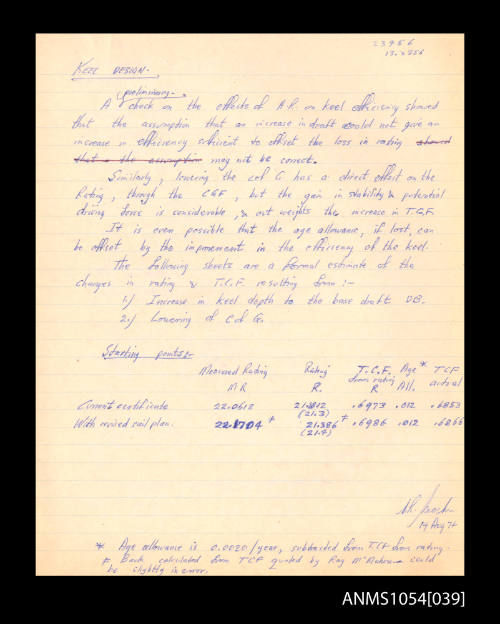 KEEL DESIGN.
preliminary
A check on the effects of A.R. on keel efficiency showed
that the assumption that an increase in draft would not give an
increase in efficiency sufficient to offset the loss in rating showed
that the assumption may not be correct.
Similarly, lowering the C of G has a direct effect on the
Rating, through the CGF, but the gain in stability & potential
driving force is considerable, & out weighs the increase in T.C.F.
It is even possible that the age allowance, if lost, can
be offset by the improvement in the efficiency of the keel.
The following sheets are a formal estimate of the
changes in rating & T.C.F. resulting from :-
1.) Increase in keel depth to the base draft DB.
2.) Lowering of C of G.
Starting points:-
Measured Rating Rating T.C.F. Age * TCF
MR R. from rating R All. actual
Current certificate 22.0612 .6973 .012 .6853
(21.3)
With revised sail plan. 22.1704 ≠ 21.386 ≠ .6986 .012 .6866
(21.4)
Aug 74
* Age allowance is 0.0020/year, subtracted from TCF from rating.
≠ Back calculated from TCF quoted by Ray could
be slightly in error.
ANMS1054[039]